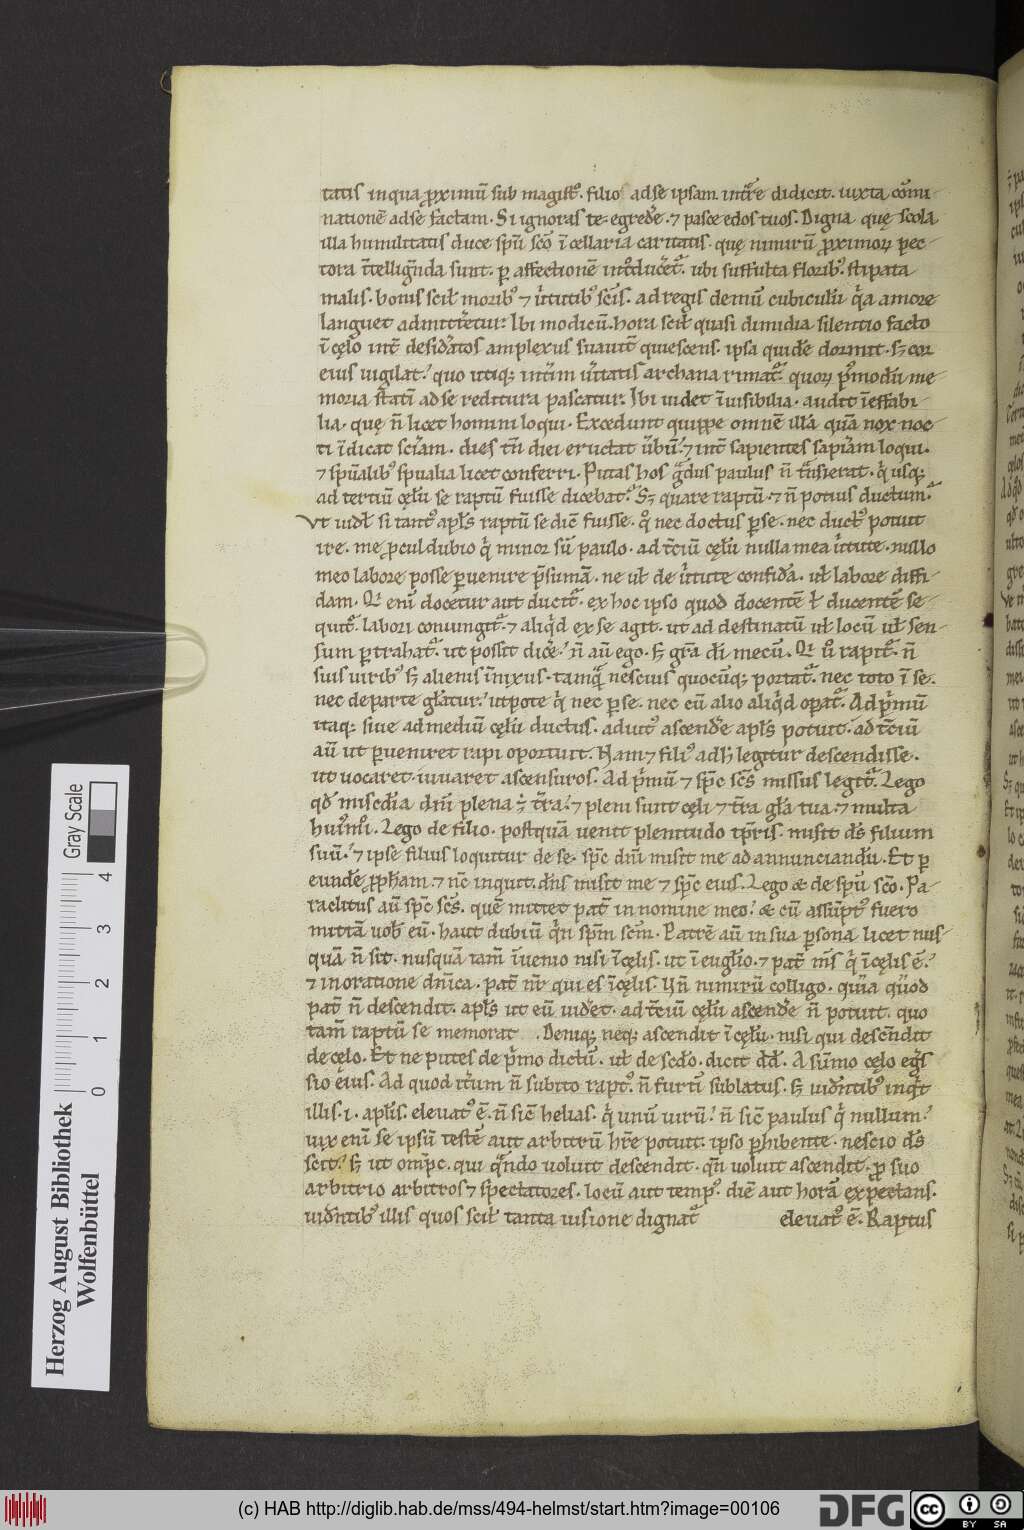 tatis in qua ꝓximū sub magistꝰ. filio adse ipsam intͬe didicit. iuxta cōmi
nationē adse factam. Si ignoras te egredͬe. ⁊ pasce edos tuos. Digna quę scola
illa humilitatis duce spū scō ī cellaria caritatis. quę nimirū ꝓximoꝝ pec
tora ītelligēda sunt. ꝑ affectionē intͦducͬetᷣ. ubi suffulta floribꝰ. stipata
malis. bonis scilꝫ moribꝰ ⁊ uͥtutibꝰ scīs. ad regis demū cubiculū qͥa amore
languet admittͬetur. Ibi modicū. hora scilꝫ quasi dimidia silentio facto
ī cęlo intͬ desidͬatos amplexus suauitͬ quiescens. ipsa quidē dormit. sꝫ cor
eius uigilat. quo utiqꝫ intͥm uͥtatis archana rimatᷣ. quoꝝ pͦmodū me
moria statī ad se reditura pascatur. Ibi uidet īuisibilia. audit īeffabi
lia. quę n̄ licet homini loqui. Excedunt quippe omnē illā quā nox noc
ti īdicat sciām. dies tn̄ diei eructat uͬbū. ⁊ intͬ sapientes sapiām loqui.
⁊ spūalibꝰ spūalia licet conferri. Putas hos gͣdus paulus n̄ tͣnsierat. qͥ usqꝫ
ad tertiū cęlū se raptū fuisse dicebat. Sꝫ quare raptū. ⁊ n̄ potius ductum.
Vt uidꝫ si tantꝰ apls raptū se dicͬ fuisse. qͦ nec doctus ꝑ se. nec ductꝰ potuit
ire. me ꝓcul dubio qͥ minor sū paulo. ad tͬciū cęlū nulla mea uͥtute. nullo
meo labore posse ꝑuenire pͬsumā. ne uł de uͥtute confidā. uł labore diffi
dam. Qͥ enī docetur aut ducitᷣ. ex hoc ipso quod docentē ł ducentē se
quitᷣ. labori coniungitᷣ. ⁊ aliqͥd ex se agit. ut ad destinatū uł locū uł sen
sum ꝑtrahatᷣ. ut possit dicͬe. n̄ aū ego. sꝫ grā dī mecū. Qͥ uͦ rapitᷣ. n̄
suis uiribꝰ sꝫ alienis īnixus. tamqͣ nescius quocūqꝫ portatᷣ. nec toto ī se.
nec de parte głatur. utpote qͥ nec ꝑ se. nec cū alio aliqͥd opͣtᷣ. Ad pͥmū
itaqꝫ siue ad mediū cęlū ductus. adiutꝰ ascendͬe apls potuit. ad tͬciū
aū ut ꝑueniret rapi oportuit. Nam ⁊ filiꝰ adhͨ legitur descendisse.
ut uocaret. iuuaret ascensuros. Ad pͥmū ⁊ spͨ scs̄ missus legitᷣ. Lego
qđ misͨdia dnī plena ē tͬra. ⁊ pleni sunt cęli ⁊ tͬra głā tua. ⁊ multa
huiͥmōi. Lego de filio. postquā uenit plenitudo tp̄ris. misit dś filium
suū. ⁊ ipse filius loquitur de se. spͨ dnī misit me ad annunciandū. Et ꝑ
eundē ꝓphͣam. ⁊ nͨ inquit. dn̄s misit me ⁊ spͨ eius. Lego & de spū scō. Pa
raclitus aū spͨ scs̄. quē mittet patͬ in nomine meo. & cū assūptꝰ fuero
mittā uob eū. haut dubiū qͥn spm̄ scm̄. Patrē aū in sua ꝑsona licet nus
quā n̄ sit. nusquā tam̄ īuenio nisi ī cęlis. ut ī euglͥo. ⁊ patͬ ms̄ qͥ ī cęlis ē.
⁊ in oratione dn̄ica. patͬ nr̄ qui es ī cęlis. Hn̄ nimirū colligo. quia quod
patͬ n̄ descendit. apls ut eū uidͬet. ad tͬciū cęlū ascendͬe n̄ potuit. quo
tam̄ raptū se memorat. Deniqꝫ neqꝫ ascendit ī cęlū. nisi qui descēdit
de celo. Et ne putes de pͥmo dictū. uł de scdō. dicit dd̄. A sūmo cęlo egͬs
sio eius. Ad quod itͬum n̄ subito raptꝰ. n̄ furtī sublatus. sꝫ uidentibꝰ inqͥt
illis. i. aplīs. eleuatꝰ ē. n̄ sic helias. qͥ unū uirū. n̄ sic paulus qͥ nullum.
uix enī se ipsū testē aut arbitrū hre potuit. ipso ꝑhibente. nescio dś
scit. sꝫ ut omīpͨ. qui qͣndo uoluit descendit. qn̄ uoluit ascendit. ꝓ suo
arbitrio arbitros ⁊ spectatores. locū aut tempꝰ. diē aut horā expectans.
uidentibꝰ illis quos scilꝫ tanta uisione dignatᷣ eleuatꝰ ē. Raptus
Herzog August Bibliothek
Wolfenbüttel
Gray Scale
0 1 2 3 4
(c) HAB http://diglib.hab.de/mss/494-helmst/start.htm?image=00106
DFG
cc BY SA